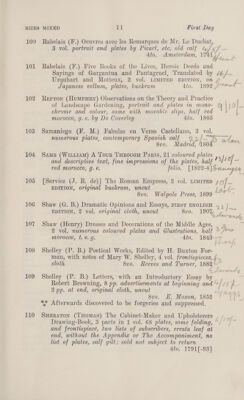 MIXED MIXED 11 First Day
100 Rabelais (F.) Oeuvres avec les Remarques de Mr. Le Duchat,
3 vol. portrait and plates by Picart, etc, old calf
4to. Amsterdam, 1741
101 Rabelais (F.) Five Books of the Lives, Heroic Deeds and
Sayings of Gargantua and Pantagruel, Translated by
Urquhart and Motteux, 2 vol. LIMITED EDITION, on
Japanese vellum, plates, buckram 4to. 1892
102 REPTON (HUMPHRY) Observations on the Theory and Practice
of Landscape Gardening, portrait and plates in mono-
chrome and colour, some with movable slips, half red
morocco, g. e. by De Coverley 4to. 1803
103 Samaniego (F. M.) Fabulas en Verso Castellano, 2 vol.
numerous plates, contemporary Spanish calf
8vo. Madrid, 1804
104 SAMS (WILLIAM) A TOUR THROUGH PARIS, 21 coloured plates
and descriptive text, fine impressions of the plates, half
red morocco, g. e. folio. [1822-8]
105 [Service (J. R. de)] The Roman Empress, 2 vol. LIMITED
EDITION, original buckram, uncut
8vo. Walpole Press, 1899
106 Shaw (G. B.) Dramatic Opinions and Essays, FIRST ENGLISH
EDITION, 2 vol. original cloth, uncut 8vo. 1907
107 Shaw (Henry) Dresses and Decorations of the Middle Ages,
2 vol. numerous coloured plates and illustrations, half
morocco, t. e. g. 4to. 1843
108 Shelley (P. B.) Poetical Works, Edited by H. Buxton For-
man, with notes of Mary W. Shelley, 4 vol. frontispieces,
cloth 8vo. Reeves and Turner, 1882
109 Shelley (P. B.) Letters, with an Introductory Essay by
Robert Browning, 8 pp. advertisements at beginning and
2 pp. at end, original cloth, uncut
8vo. E. Moxon, 1852
⁂ Afterwards discovered to be forgeries and suppressed.
110 SHERATON (THOMAS) The Cabinet-Maker and Upholsterers
Drawing-Book, 3 parts in 1 vol. 68 plates, some folding,
and frontispiece, two lists of subscribers, errata leaf at
end, without the Appendix or The Accompaniment, no
list of plates, calf gilt; sold not subject to return
4to. 1791[-93]